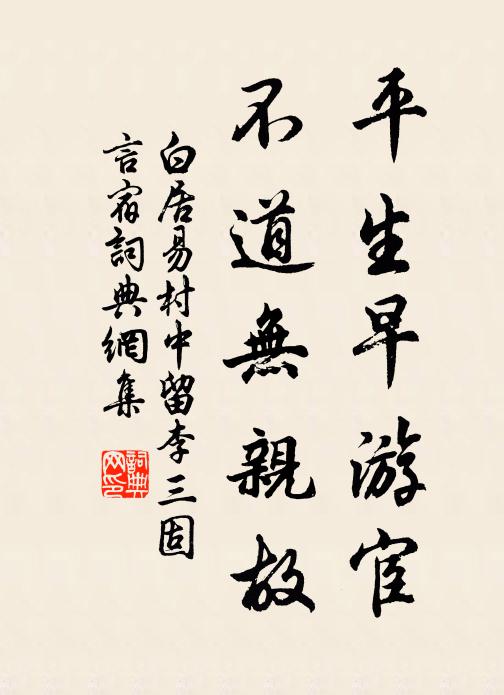 平生早游宦
不道無親故
白居易村中留李三固
言宿詞典網集
詞典
网印